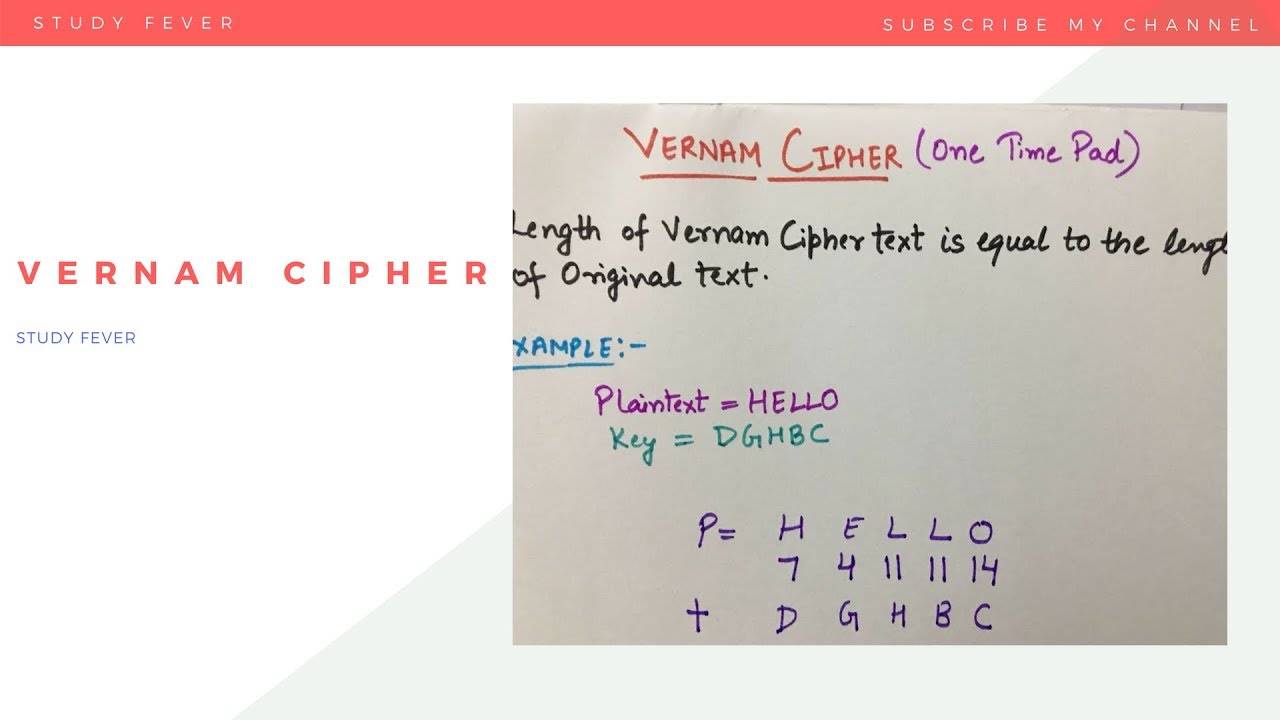 STUDY FEVER
SUBSCRIBE MY CHANNEL
VERNAM CIPHER
STUDY FEVER
VERNAM CIPHER (One Time Pad)
Length of Vernam Cipher text is equal to the lengt
of Original text.
XAMPLE:-
Plaintext = HELLO
Key = DGHBC
P= H E L L O
7 4 11 11 14
+ D G H B C